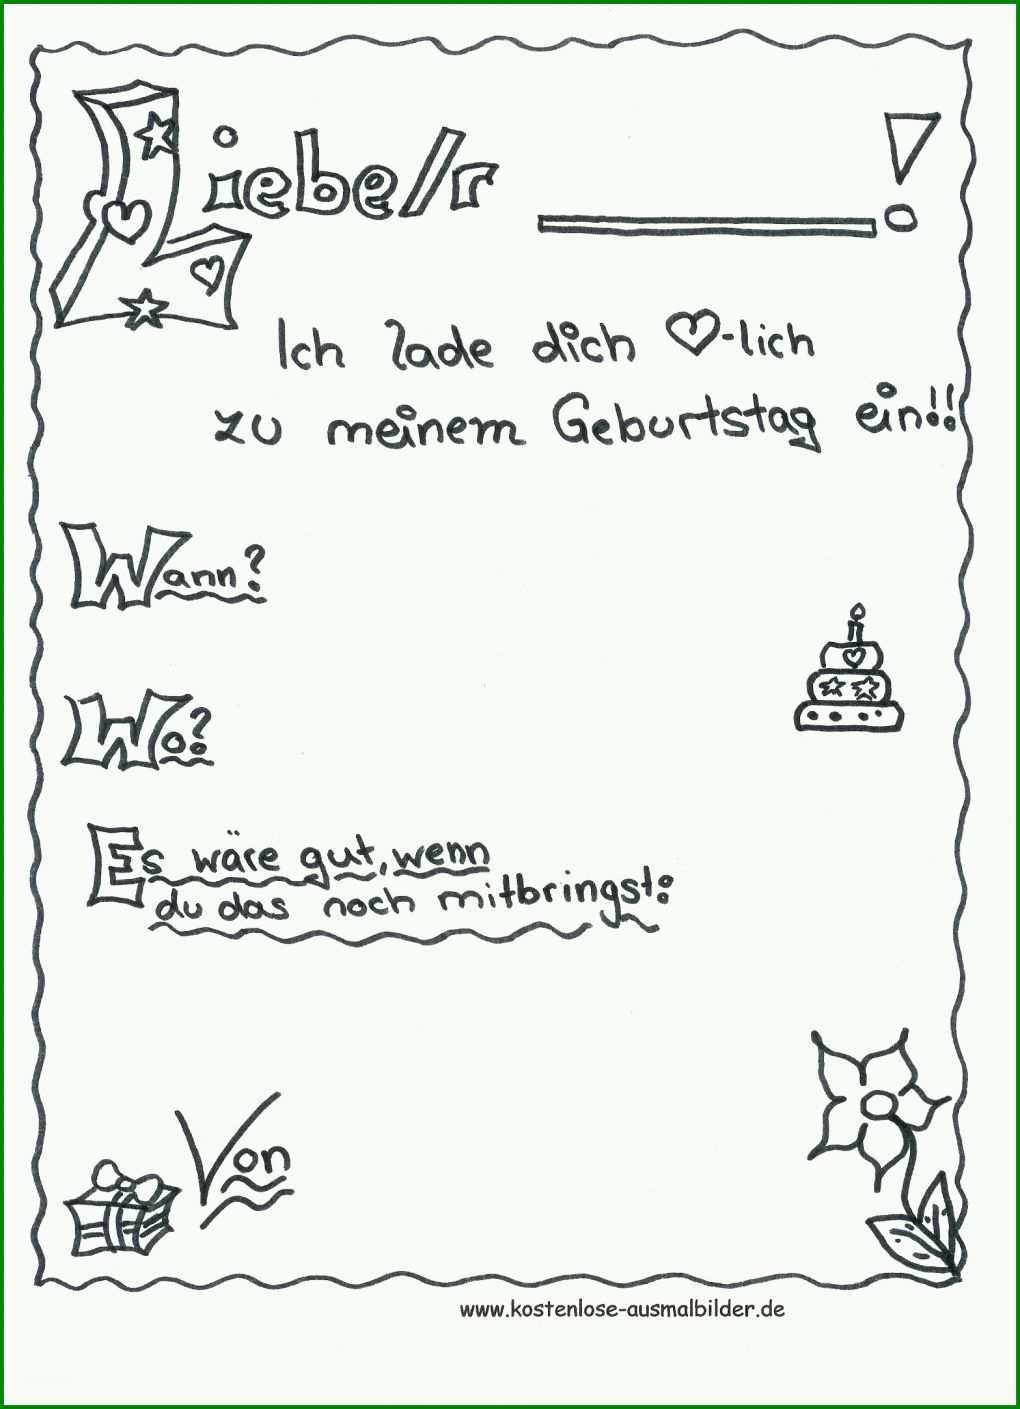 Liebe/r ________!
Ich lade dich ♡-lich
zu meinem Geburtstag ein!!
Wann?
Wo?
Es wäre gut, wenn
du das noch mitbringst:
Von
www.kostenlose-ausmalbilder.de